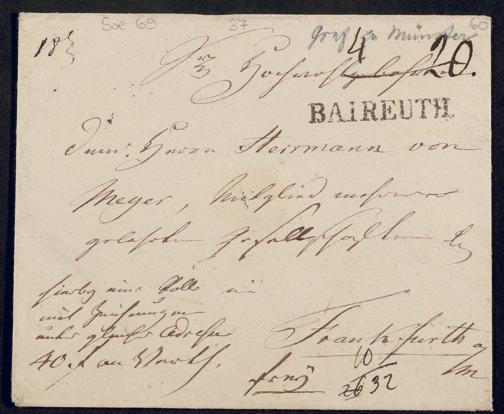 Soe 69 37 60
Graf zu Münster
18
4 20
Sr Hochwohlgeboren
BAIREUTH.
dem Herrn Herrmann von
Meyer, Mitglied mehrerer
gelehrten Gesellschaften
hierbey eine Rolle
mit Zeichnungen
unter gleicher Adresse
40 f an Werth.
Frankfurth a/m
frey
10
26 32